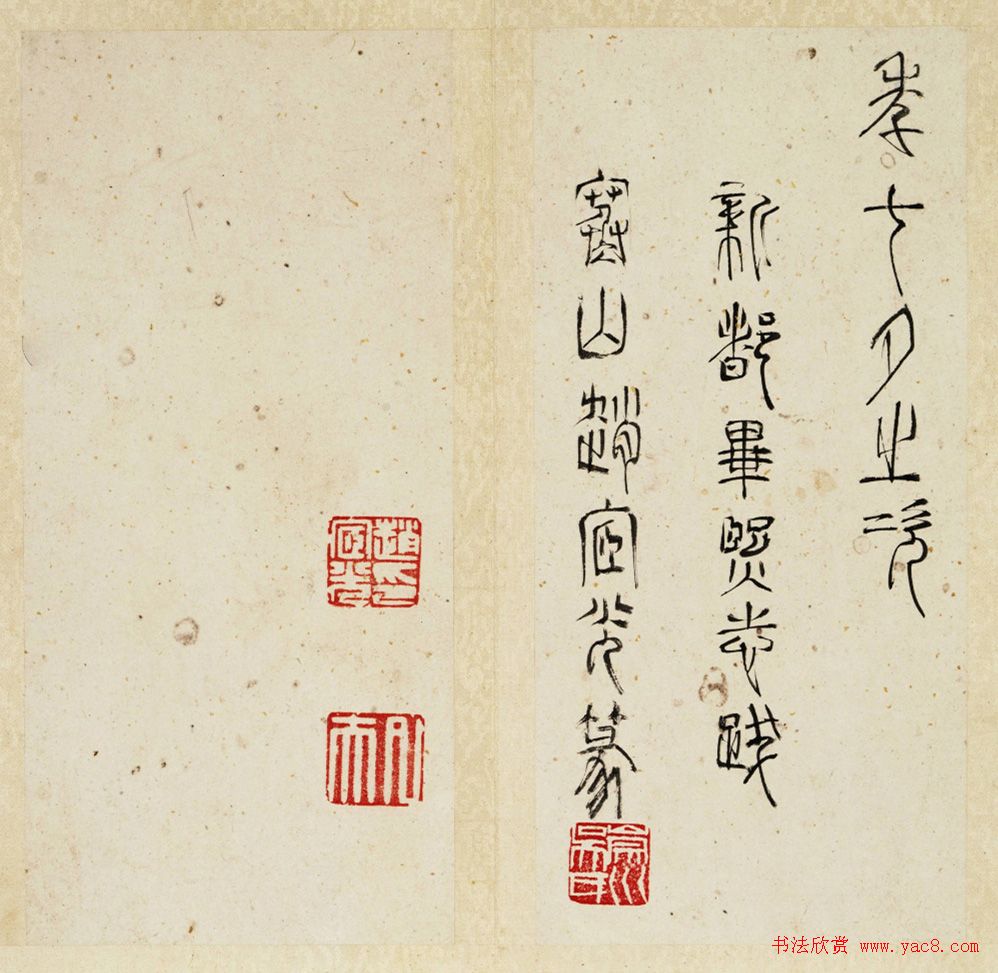 七夕之次
新都畢熙志踐
寒山趙宧光篆
趙宧光印
凡夫
书法欣赏 www.yac8.com